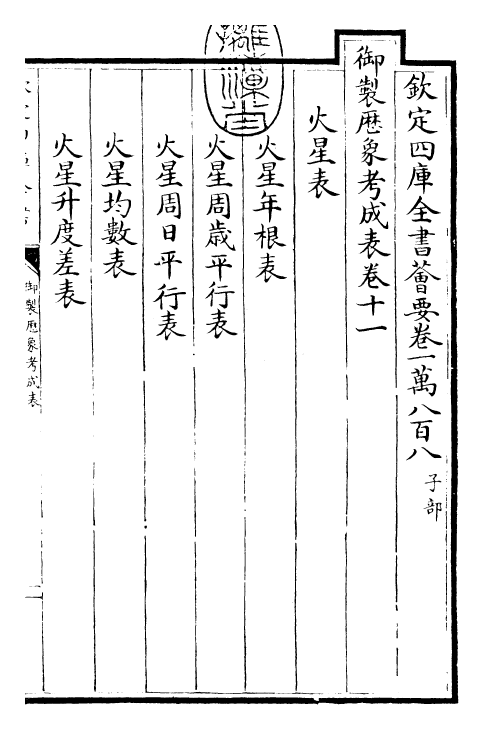 欽定四庫全書薈要卷一萬八百八 子部
御製厯象考成表卷十一
火星表
火星年根表
火星周歳平行表
火星周日平行表
火星均數表
火星升度差表
御製厯象考成表
一